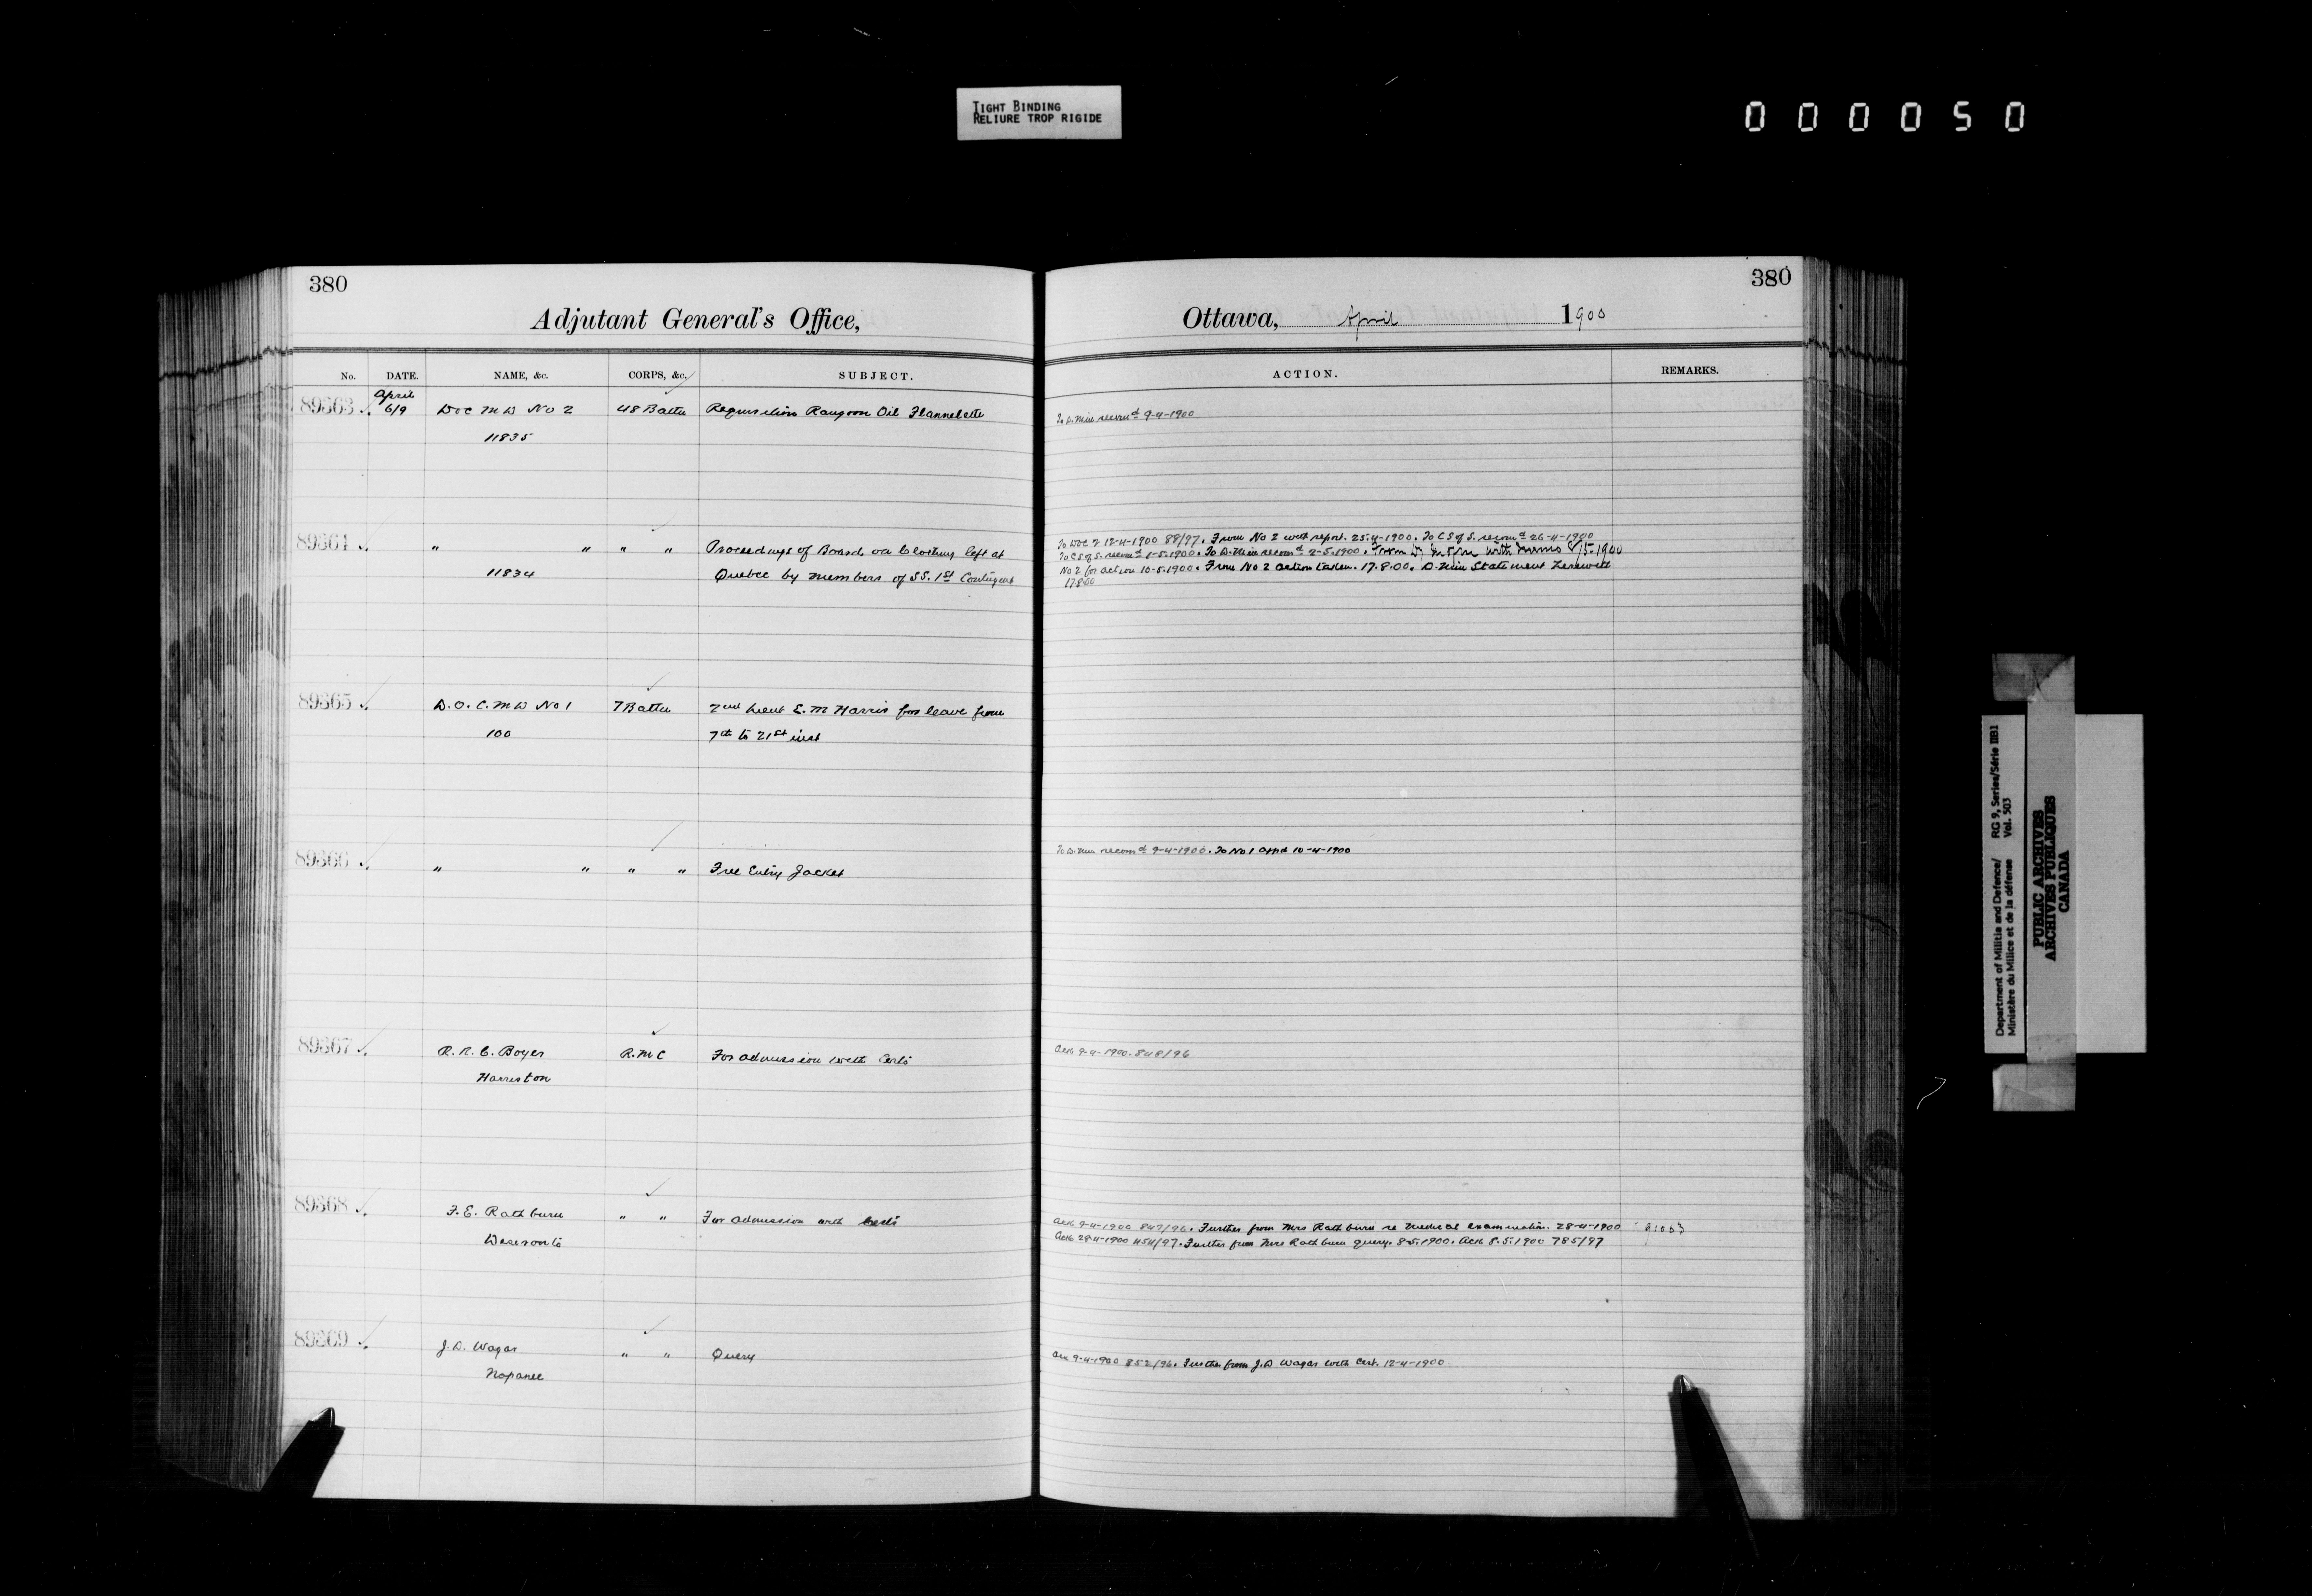 TIGHT BINDING
RELIURE TROP RIGIDE
000050
380
Adjutant General's Office,
No. DATE. NAME, &c. CORPS, &c. SUBJECT.
April
89363 6/9 DOC MD No 2 48 Battn Requisition Rangoon Oil Flannelette
11835
89364 " " " " Proceedings of Board on Clothing left at
11834 Quebec by members of SS. 1st Contingent
89365 D.O.C. MD No 1 7 Battn 2nd Lieut E. M Harris for leave from
100 7th to 21st inst
89366 " " " " Free Entry Jacket
89367 R. R. C. Boyer R.M.C For admission with Certs
Harriston
89368 F. E. Rathbun " " For admission with Certs
Deseronto
89369 J. D. Wagar " " Query
Napanee
380
Ottawa, April 1900
ACTION. REMARKS.
To D. Min recomd 9-4-1900
To DOC 2 12-4-1900 88/97. From No 2 with report. 25-4-1900. To C S of S. recomd 26-4-1900
To C S of S. recomd 1-5-1900. To D. Min recomd 2-5-1900. From with memo /5-1900
No 2 for action 10-5-1900. From No 2 action taken. 17.8.00. D. Min Statement herewith
17.8.00
To D. Min recomd 9-4-1900. To No 1 appd 10-4-1900
Ack 9-4-1900. 848/96
Ack 9-4-1900 847/96. Further from Mrs Rathbun re medical examination. 28-4-1900
Ack 28-4-1900 454/97. Further from Mrs Rathbun query. 8-5-1900. Ack 8.5.1900 785/97
Ack 9-4-1900 852/96. Further from J. D Wagar with Cert. 12-4-1900
Department of Militia and Defence/ RG 9, Series/Série IIB1
Ministère du Milice et de la défense Vol. 503
PUBLIC ARCHIVES
ARCHIVES PUBLIQUES
CANADA